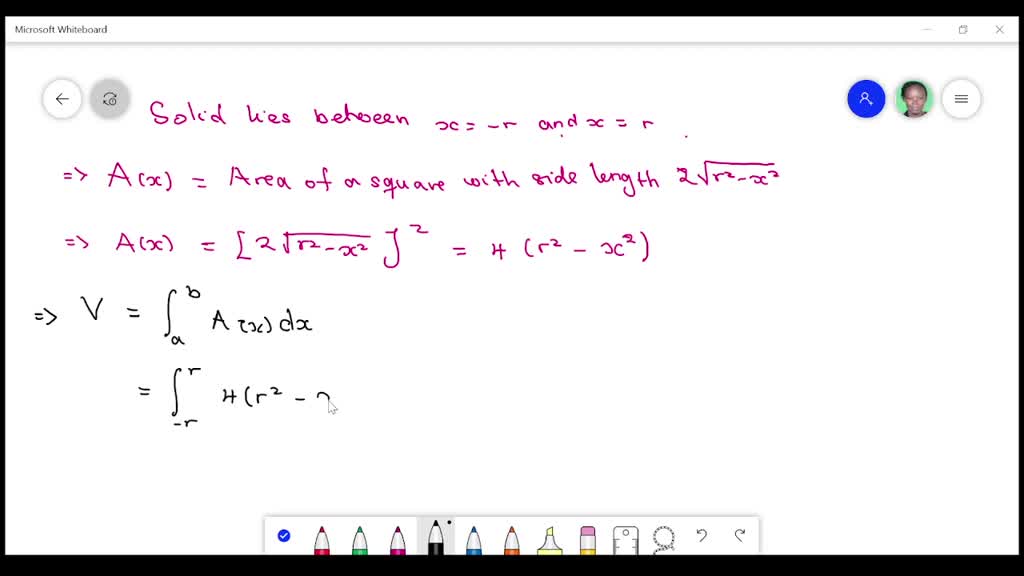 Microsoft Whiteboard
Solid lies between x = -r and x = r .
=> A(x) = Area of a square with side length 2√(r² - x²)
=> A(x) = [2√(r² - x²)]² = 4 (r² - x²)
=> V = ∫ₐᵇ A(x) dx
= ∫₋ᵣʳ 4(r² -